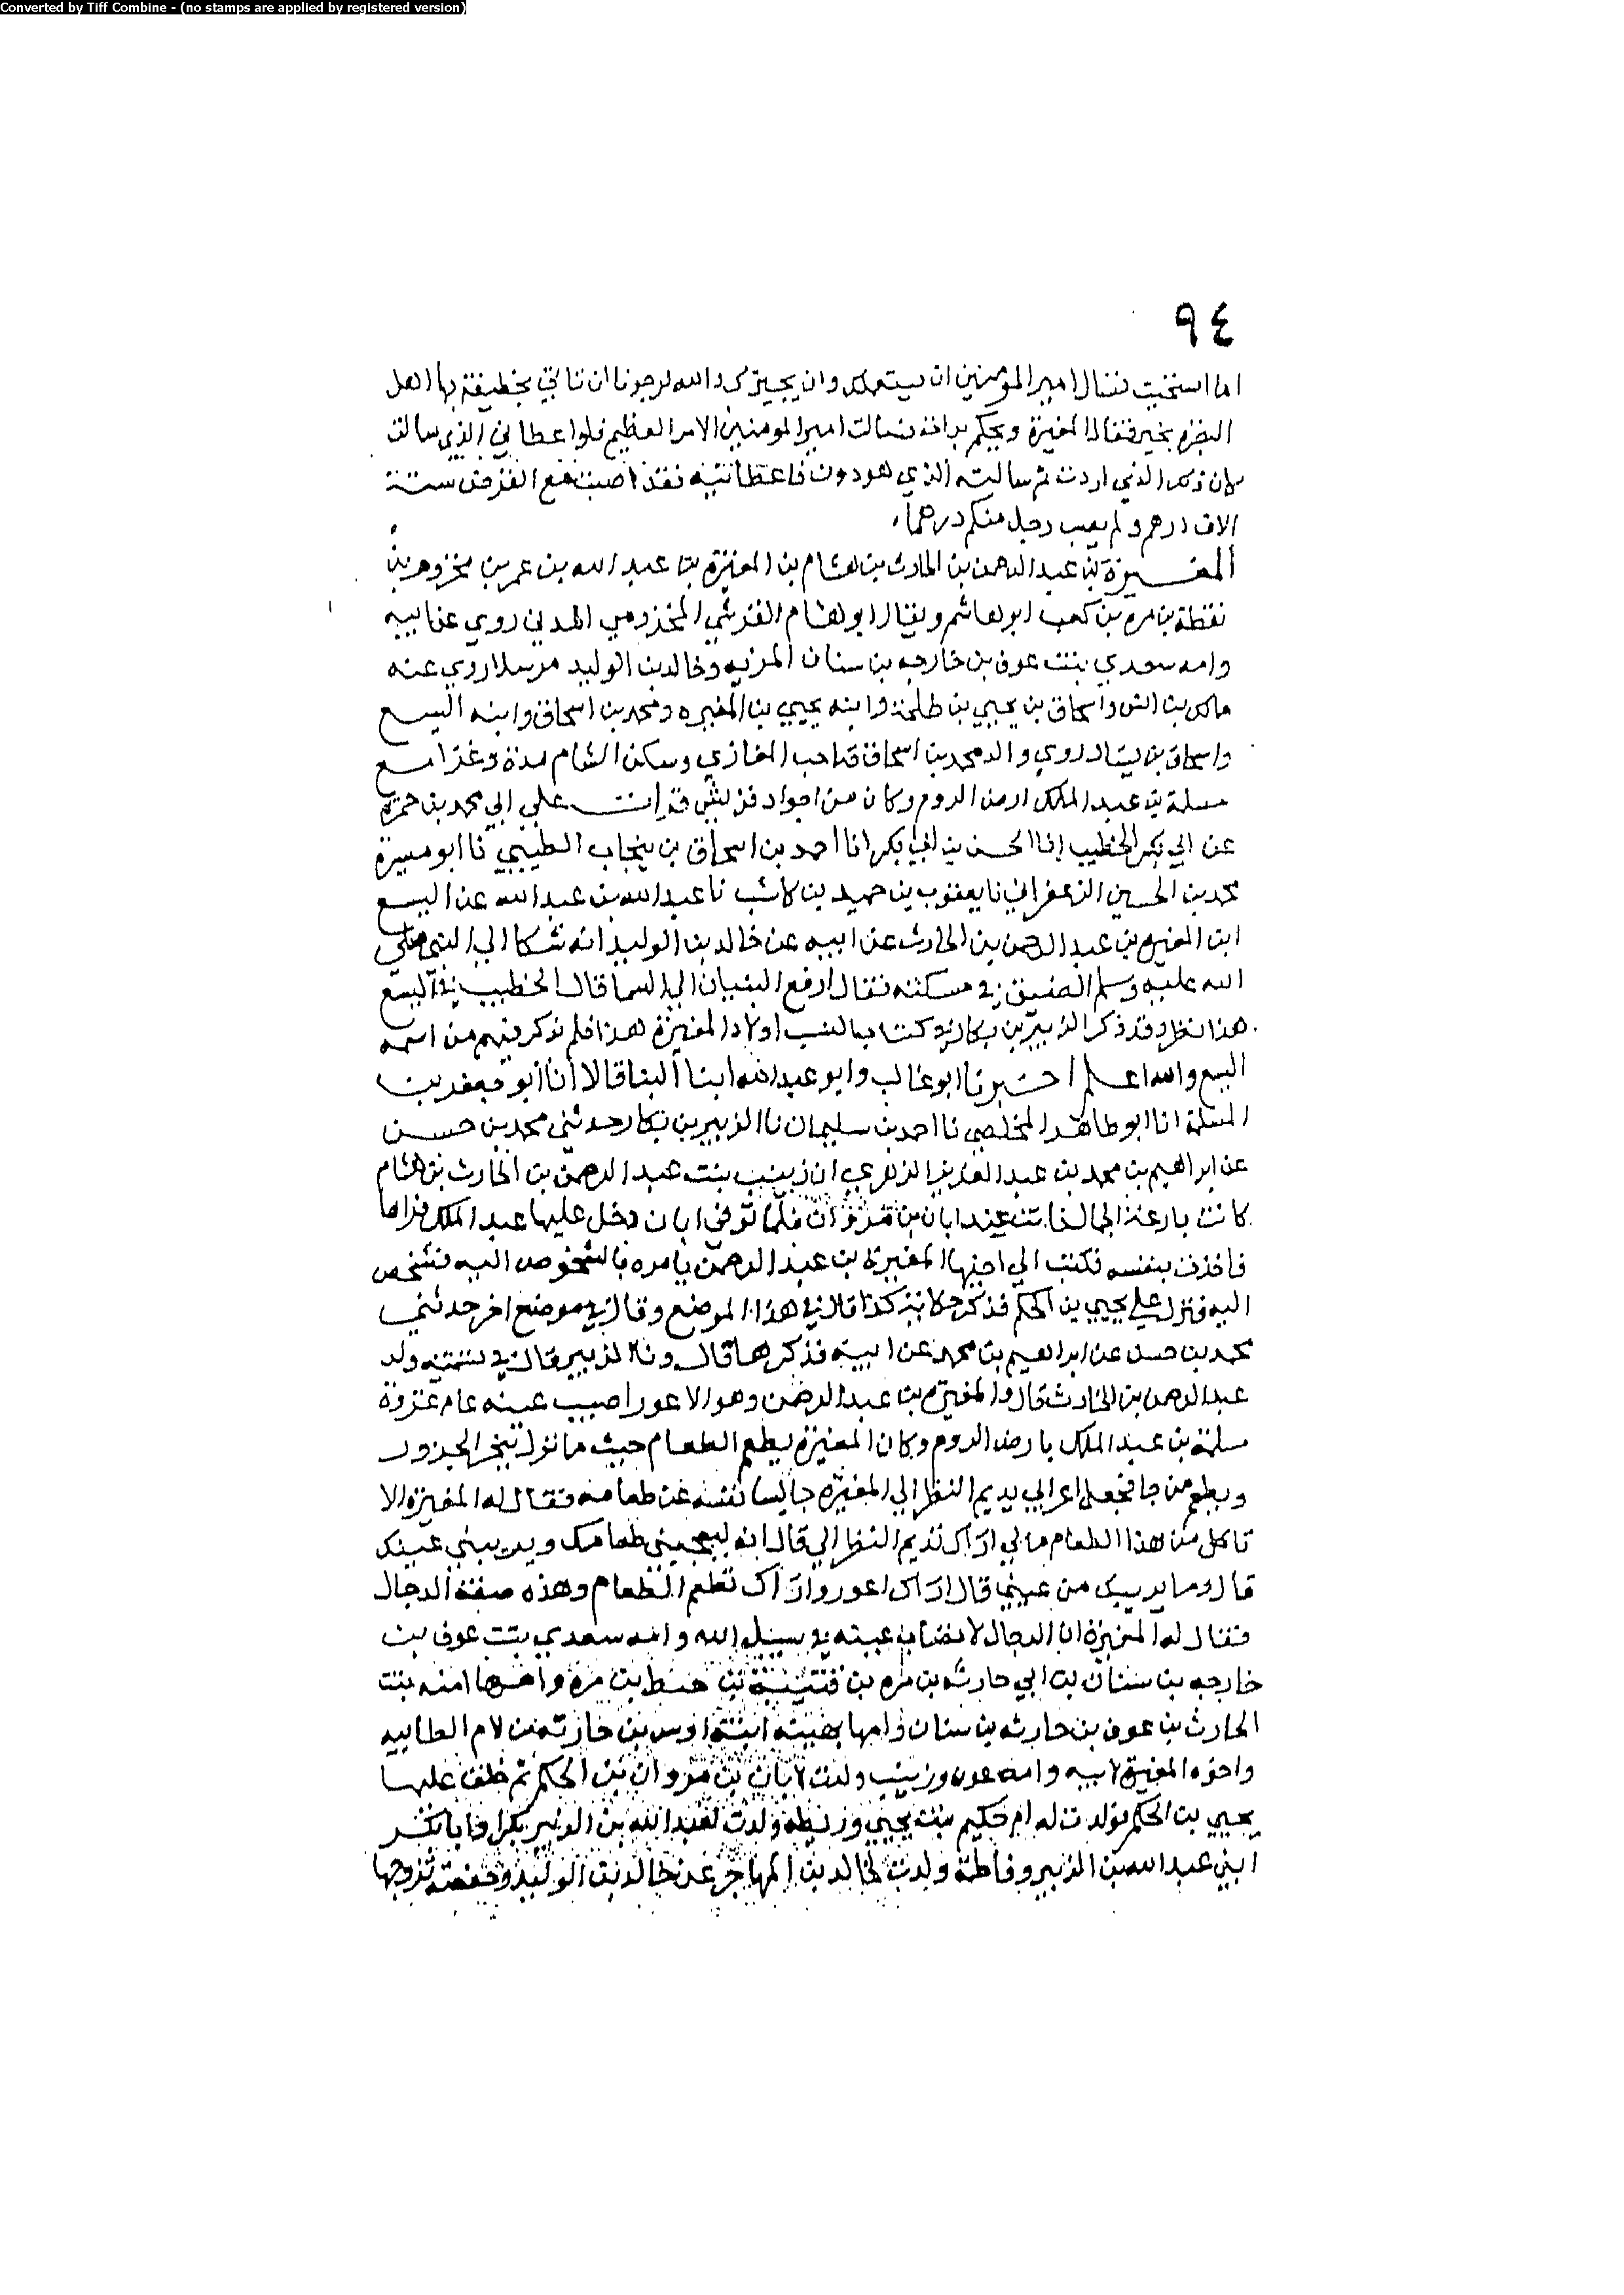 Converted by Tiff Combine - (no stamps are applied by registered version)
٩٤
اما استحيت تسال امير المومنين ان يستعملك وان يجيزك والله لرجونا ان تاتي بخطيفة بها اهل
بخير فقال المغيرة ويحكم سالت امير المومنين الامر العظيم فلو اعطاني الذي سالت
كان ذلك الذي اردت ثم سالته الذي هو دون فاعطانيه فقد اصبت مع الفرض ستة
الاف درهم ولم يصب رجل منكم درهما
المغيرة بن عبد الرحمن بن الحارث بن هشام بن المغيرة بن عبد الله بن عمر بن مخزوم بن
نقطة بن مره بن كعب ابو هاشم ويقال ابو هشام القرشي المخزومي المدني روي عن ابيه
وامه سعدي بنت عوف بن خارجه بن سنان المريه وخالد بن الوليد مرسلا روي عنه
مالك بن انس واسحاق بن يحيي بن طلحة وابنه يحيي بن المغيره ومحمد بن اسحاق وابنه اليسع
واسحاق بن يسار روي والد محمد بن اسحاق صاحب المغازي وسكن الشام مدة وغزا مع
مسلمة بن عبد الملك ارض الروم وكان من اجواد قريش قرات علي ابي محمد بن حمزة
عن ابي بكر الخطيب انا الحسن بن ابي بكر انا احمد بن اسحاق بن ينجاب الطيبي نا ابو ميسرة
محمد بن الحسين الزعفراني نا يعقوب بن حميد بن كاسب نا عبد الله بن عبد الله عن اليسع
ابن المغيره بن عبد الرحمن بن الحارث عن ابيه عن خالد بن الوليد انه شكا الي النبي صلي
الله عليه وسلم الضيق في مسكنه فقال ارفع البنيان الي السما قال الخطيب في اليسع
هذا نظر وقد ذكر الزبير بن بكار في كتاب النسب اولاد المغيرة هذا فلم يذكر فيهم من اسمه
اليسع والله اعلم اخبرنا ابو غالب وابو عبد الله ابنا البنا قالا انا ابو جعفر بن
المسلمة انا ابو طاهر المخلص نا احمد بن سليمان نا الزبير بن بكار حدثني محمد بن حسن
عن ابراهيم بن محمد بن عبد العزيز الزهري ان زينب بنت عبد الرحمن بن الحارث بن هشام
كانت بارعة الجمال عند ابان بن مروان فلما توفي ابان دخل عليها عبد الملك فراها
فاخذت بنفسه فكتب الي اخيها المغيرة بن عبد الرحمن يامره بالشخوص اليه فشخص
اليه فنزل علي يحيي بن الحكم فذكر حكاية كذا قال في هذا الموضع وقال في موضع اخر حدثني
محمد بن حسن عن ابراهيم بن محمد عن ابيه فذكرها قال ونا الزبير قال في تسمية ولد
عبد الرحمن بن الحارث قال والمغيره بن عبد الرحمن وهو الاعور اصيب عينه عام غزوة
مسلمة بن عبد الملك بارض الروم وكان المغيرة يطعم الطعام حيث ما نزل ينحر الجزور
ويطعم من جا فجعل اعرابي يديم النظر الي المغيره جالسا نفسه عن طعامه فقال له المغيرة الا
تاكل من هذا الطعام مالي اراك تديم النظر الي قال انه ليعجبني طعامك ويريبني عينك
قال وما يريبك من عيني قال اراك اعور واراك تطعم الطعام وهذه صفة الدجال
فقال له المغيرة ان الدجال لا تصاب عينه في سبيل الله وامه سعدي بنت عوف بن
خارجه بن سنان بن ابي حارثه بن مره بن بن مرة وامها امنه بنت
الحارث بن عوف بن حارثه بن سنان وامها بهيسة ابنة اوس بن حارثه بن لام الطاييه
واخوه المغيرة لابيه وامه عون وزينب ولدت لابان بن مروان بن الحكم ثم خلف عليها
يحيي بن الحكم فولدت له ام حكيم بنت يحيي وريطه ولدت لعبد الله بن الزبير بكرا وابا بكر
ابني عبد الله بن الزبير وفاطمة ولدت لخالد بن المهاجر عن خالد بن الوليد وحفصة تزوجها